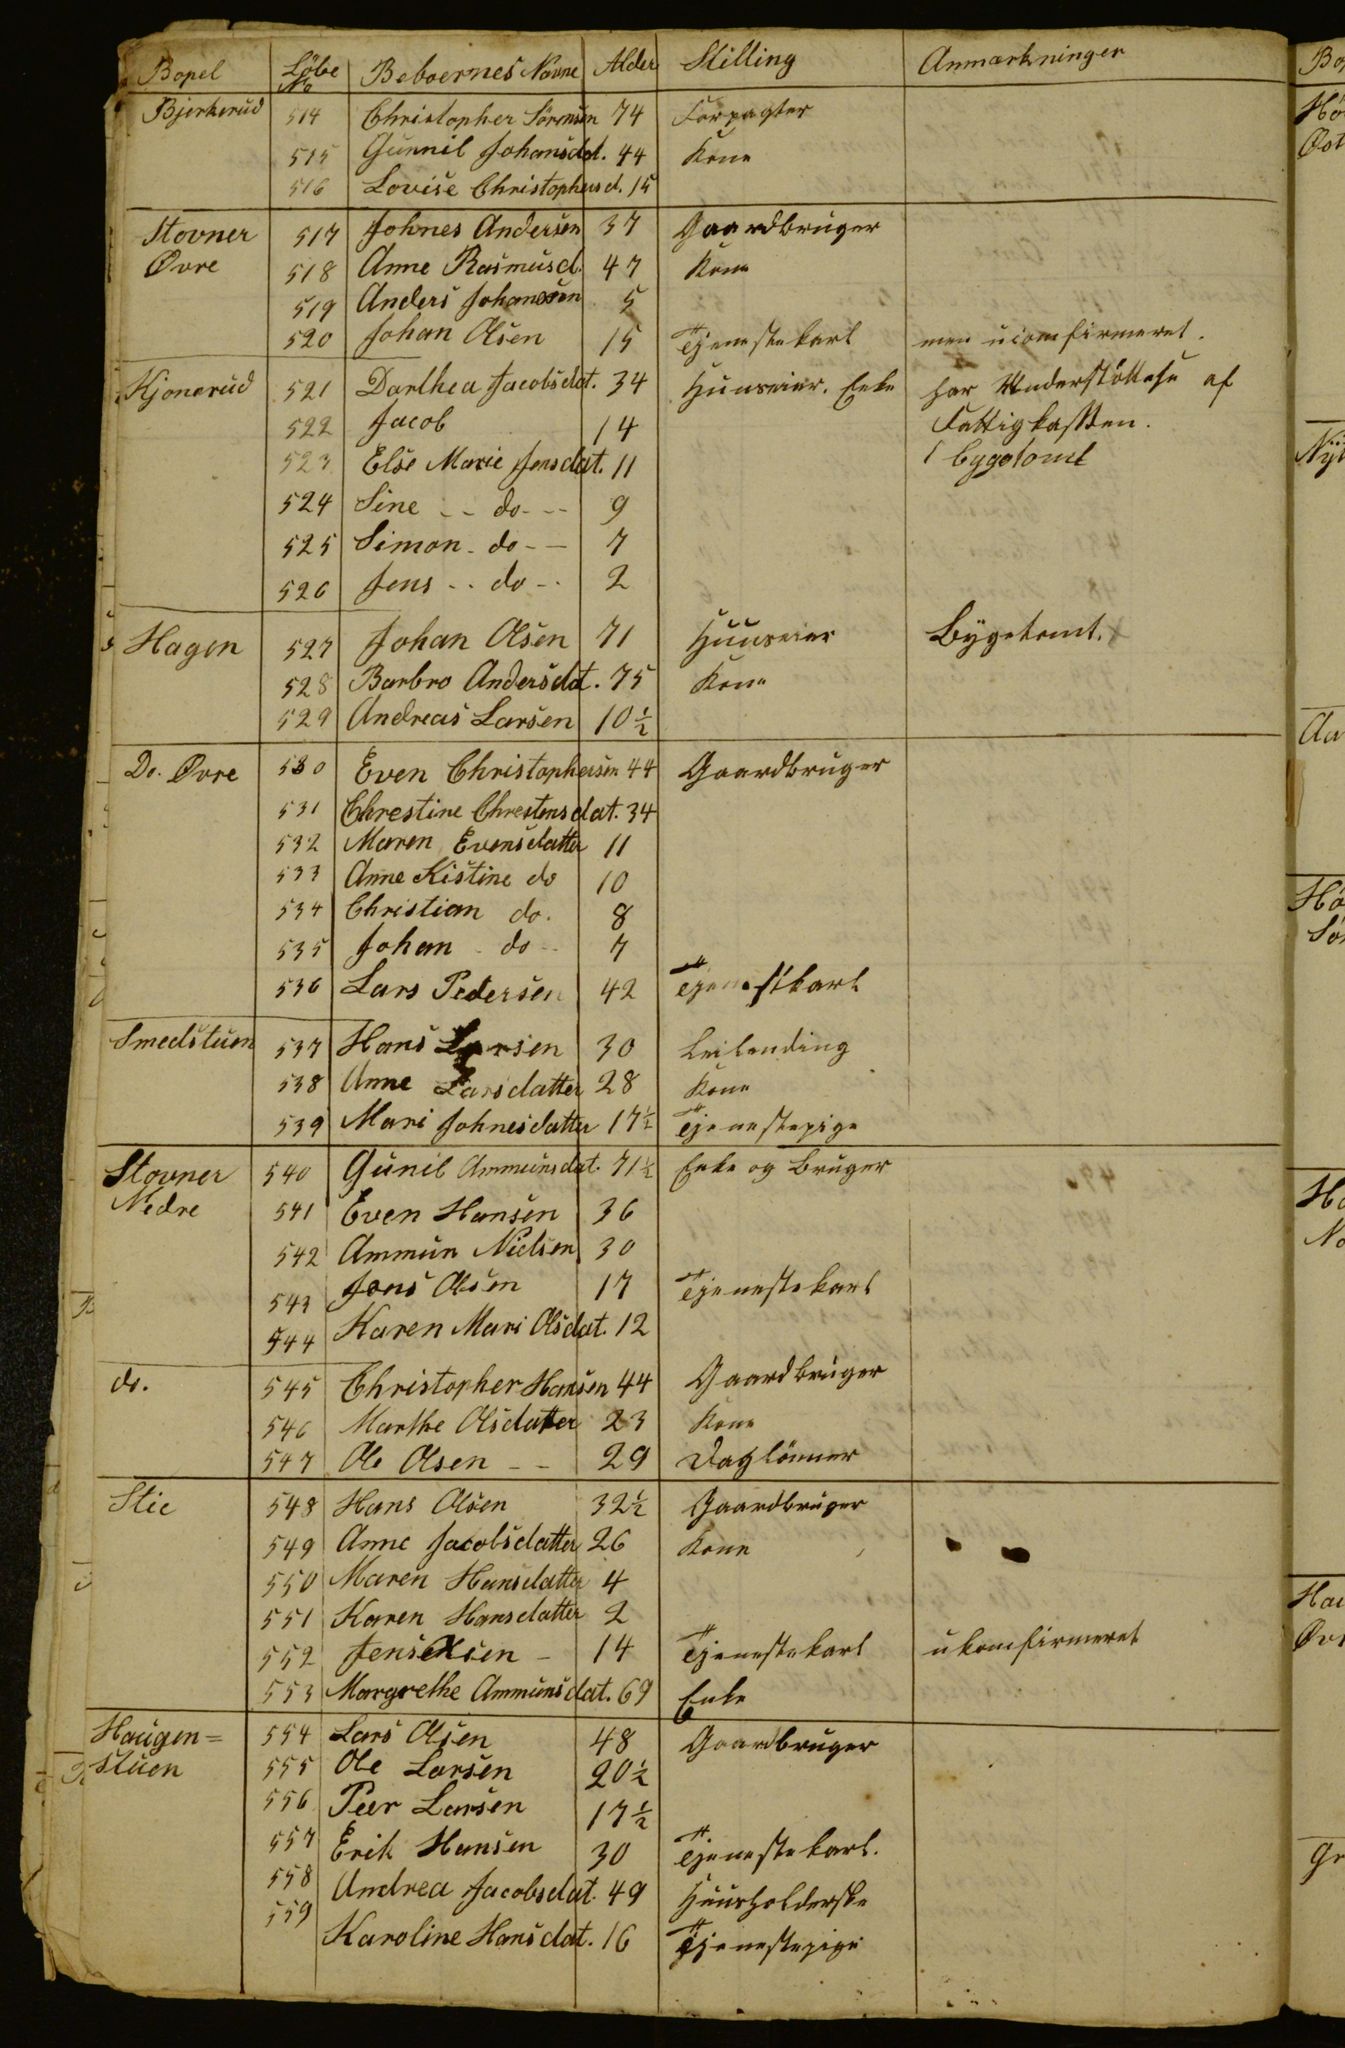 Bopel Löbe No Beboernes Navne Alder Stilling Anmærkninger
Bjerkerud 514 Christopher Sörensen 74 Forpagter
515 Gunnil Johansdat. 44 Kone
516 Lovise Christophersd. 15
Stovner 517 Johnes Andersen 37 Gaardbruger
Øvre 518 Anne Rasmusd. 47 Kone
519 Anders Johanssen 5
520 Johan Olsen 15 Tjenestekarl men uconfirmeret.
Kjonerud 521 Dorthea Jacobsdat. 34 Huuseier. Enke har Understöttelse af
522 Jacob 14 Fattigkassen.
523 Else Marie Jensdat. 11 1 bygetomt
524 Sine -- do -- 9
525 Simon - do -- 7
526 Jens -- do -- 2
Hagen 527 Johan Olsen 71 Huuseier Bygetomt.
528 Barbro Andersdat. 75 Kone
529 Andreas Larsen 10½
Do. Øvre 530 Even Christophersen 44 Gaardbruger
531 Chrestine Chrestensdat. 34
532 Maren Evensdatter 11
533 Anne Kistine do 10
534 Christian do. 8
535 Johan - do -- 7
536 Lars Pedersen 42 Tjenestkarl
Smedstuen 537 Hans Larsen 30 Leilending
538 Anne Larsdatter 28 Kone
539 Mari Johnesdatter 17½ Tjenestepige
Stovner 540 Gunil Ammunsdat. 71½ Enke og Bruger
Nedre 541 Even Hansen 36
542 Ammun Nielsen 30
543 Jens Olsen 17 Tjenestekarl
544 Karen Mari Olsdat. 12
do. 545 Christopher Hansen 44 Gaardbruger
546 Marthe Olsdatter 23 Kone
547 Ole Olsen -- 29 Daglönner
Stie 548 Hans Olsen 32½ Gaardbruger
549 Anne Jacobsdatter 26 Kone
550 Maren Hansdatter 4
551 Karen Hansdatter 2
552 Jens Olsen - 14 Tjenestekarl ukomfirmeret
553 Margrethe Ammunsdat. 69 Enke
Haugen= 554 Lars Olsen 48 Gaardbruger
stuen 555 Ole Larsen 20½
556 Peer Larsen 17½
557 Erik Hansen 30 Tjenestekarl.
558 Andrea Jacobsdat. 49 Huusholderske
559 Karoline Hansdat. 16 Tjenestepige